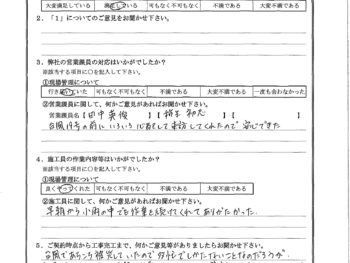 大変満足している 満足している 可もなく不可もなく 不満である 大変不満である
2.「1」についてのご意見をお聞かせ下さい。
3. 弊社の営業課員の対応はいかがでしたか？
※該当する項目に○を記入して下さい。
①現場管理について
行き届いていた 可もなく不可もなく 不満である 大変不満である 一度も会わなかった
②営業課員に関して、何かご意見があればお聞かせ下さい。
営業課員名【田中 英俊 】【
台風19号の前にいろいろ心配して来訪してくれたので安心できた
4. 施工員の作業内容等はいかがでしたか？
※該当する項目に○を記入して下さい。
①現場管理について
良くやってくれた 可もなく不可もなく 不満である 大変不満である
②施工員に関して、何かご意見があればお聞かせ下さい。
早朝から小雨の中でも作業を続けてくれてありがたかった.
5. ご契約時点から工事完工まで、何かご意見等がありましたらお聞かせ下さい。
台風であちこち被害していたので